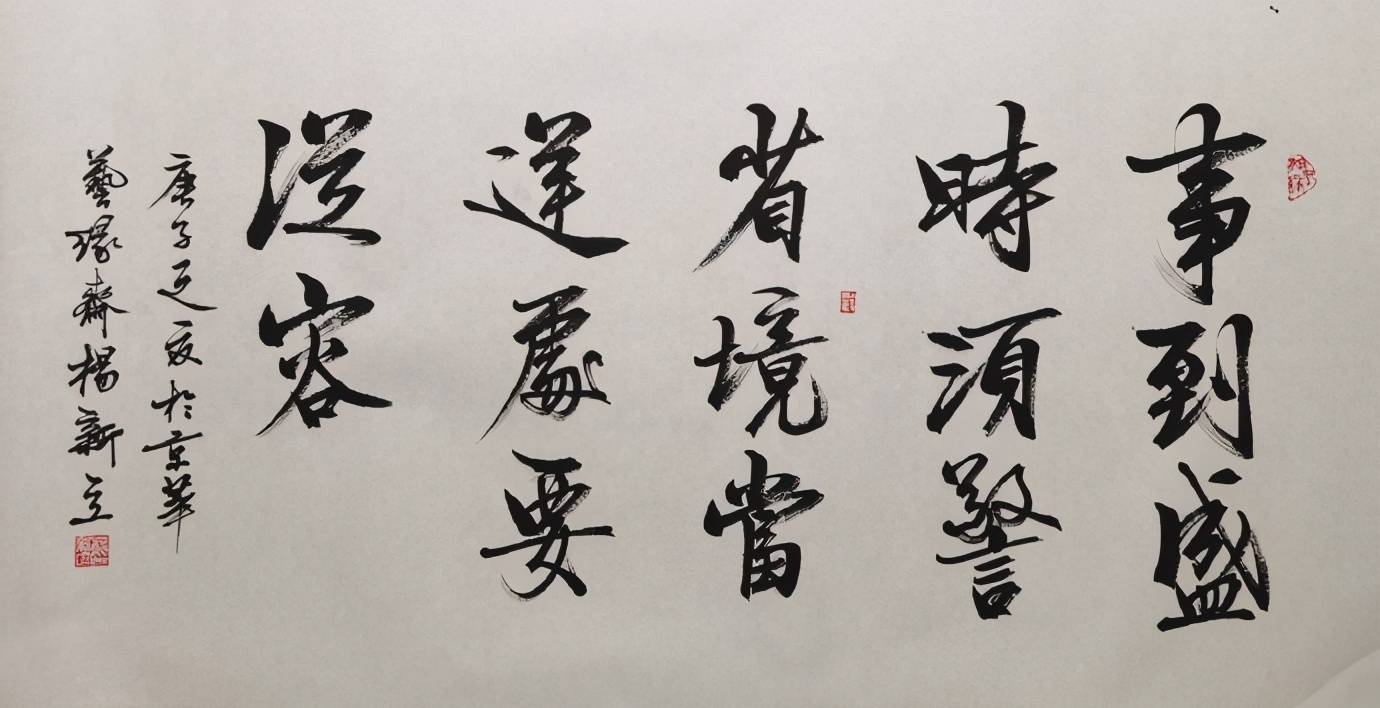 事到盛
時須警
省境當
逆處要
從容
庚子之夏於京華
藝緣齋楊新立